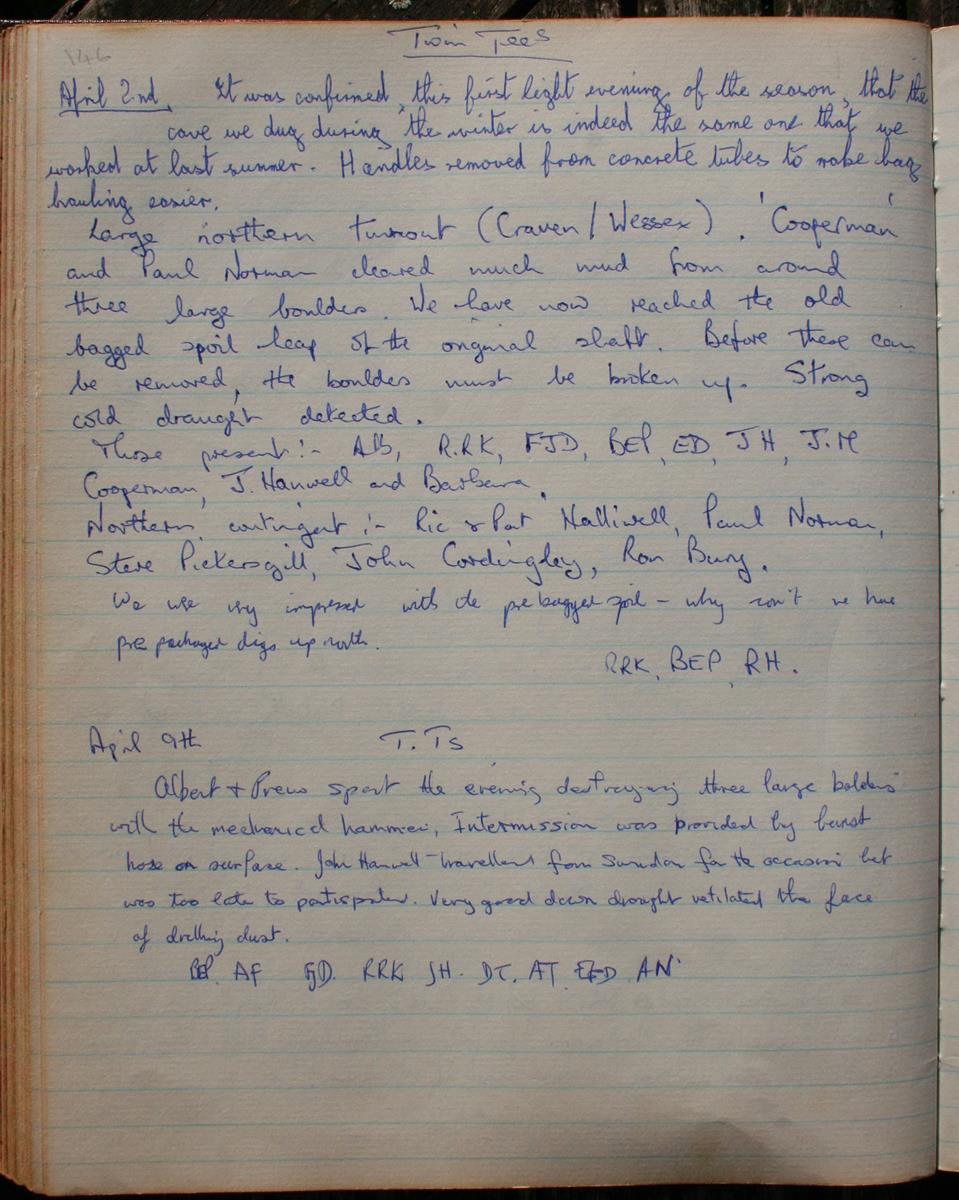 146
Twin Tees
April 2nd. It was confirmed, this first light evening of the season, that the
cave we dug during the winter is indeed the same one that we
worked at last summer. Handles removed from concrete tubes to make bag
hauling easier.
Large northern turnout (Craven/Wessex). 'Cooperman'
and Paul Norman cleared much mud from around
three large boulders. We have now reached the old
bagged spoil heap of the original shaft. Before these can
be removed, the boulders must be broken up. Strong
cold draught detected.
Those present :- AB, R.RK, FJD, BEP, ED, JH, J.M
Cooperman, J. Hanwell and Barbara.
Northern contingent :- Ric & Pat Halliwell, Paul Norman,
Steve Pickersgill, John Cordingley, Ron Bury.
We were very impressed with the pre bagged spoil - why can't we have
pre packaged digs up north.
RRK, BEP, RH.
April 9th T.Ts
Albert + Prew spent the evening destroying three large bolders
with the mechanical hammer, Intermission was provided by burst
hose on surface. John Hanwell travelled from Swindon for the occasion but
was too late to participate. Very good down drought ventilated the face
of drilling dust.
BEP. AF FJD. RRK JH. DT. AT EFD AN